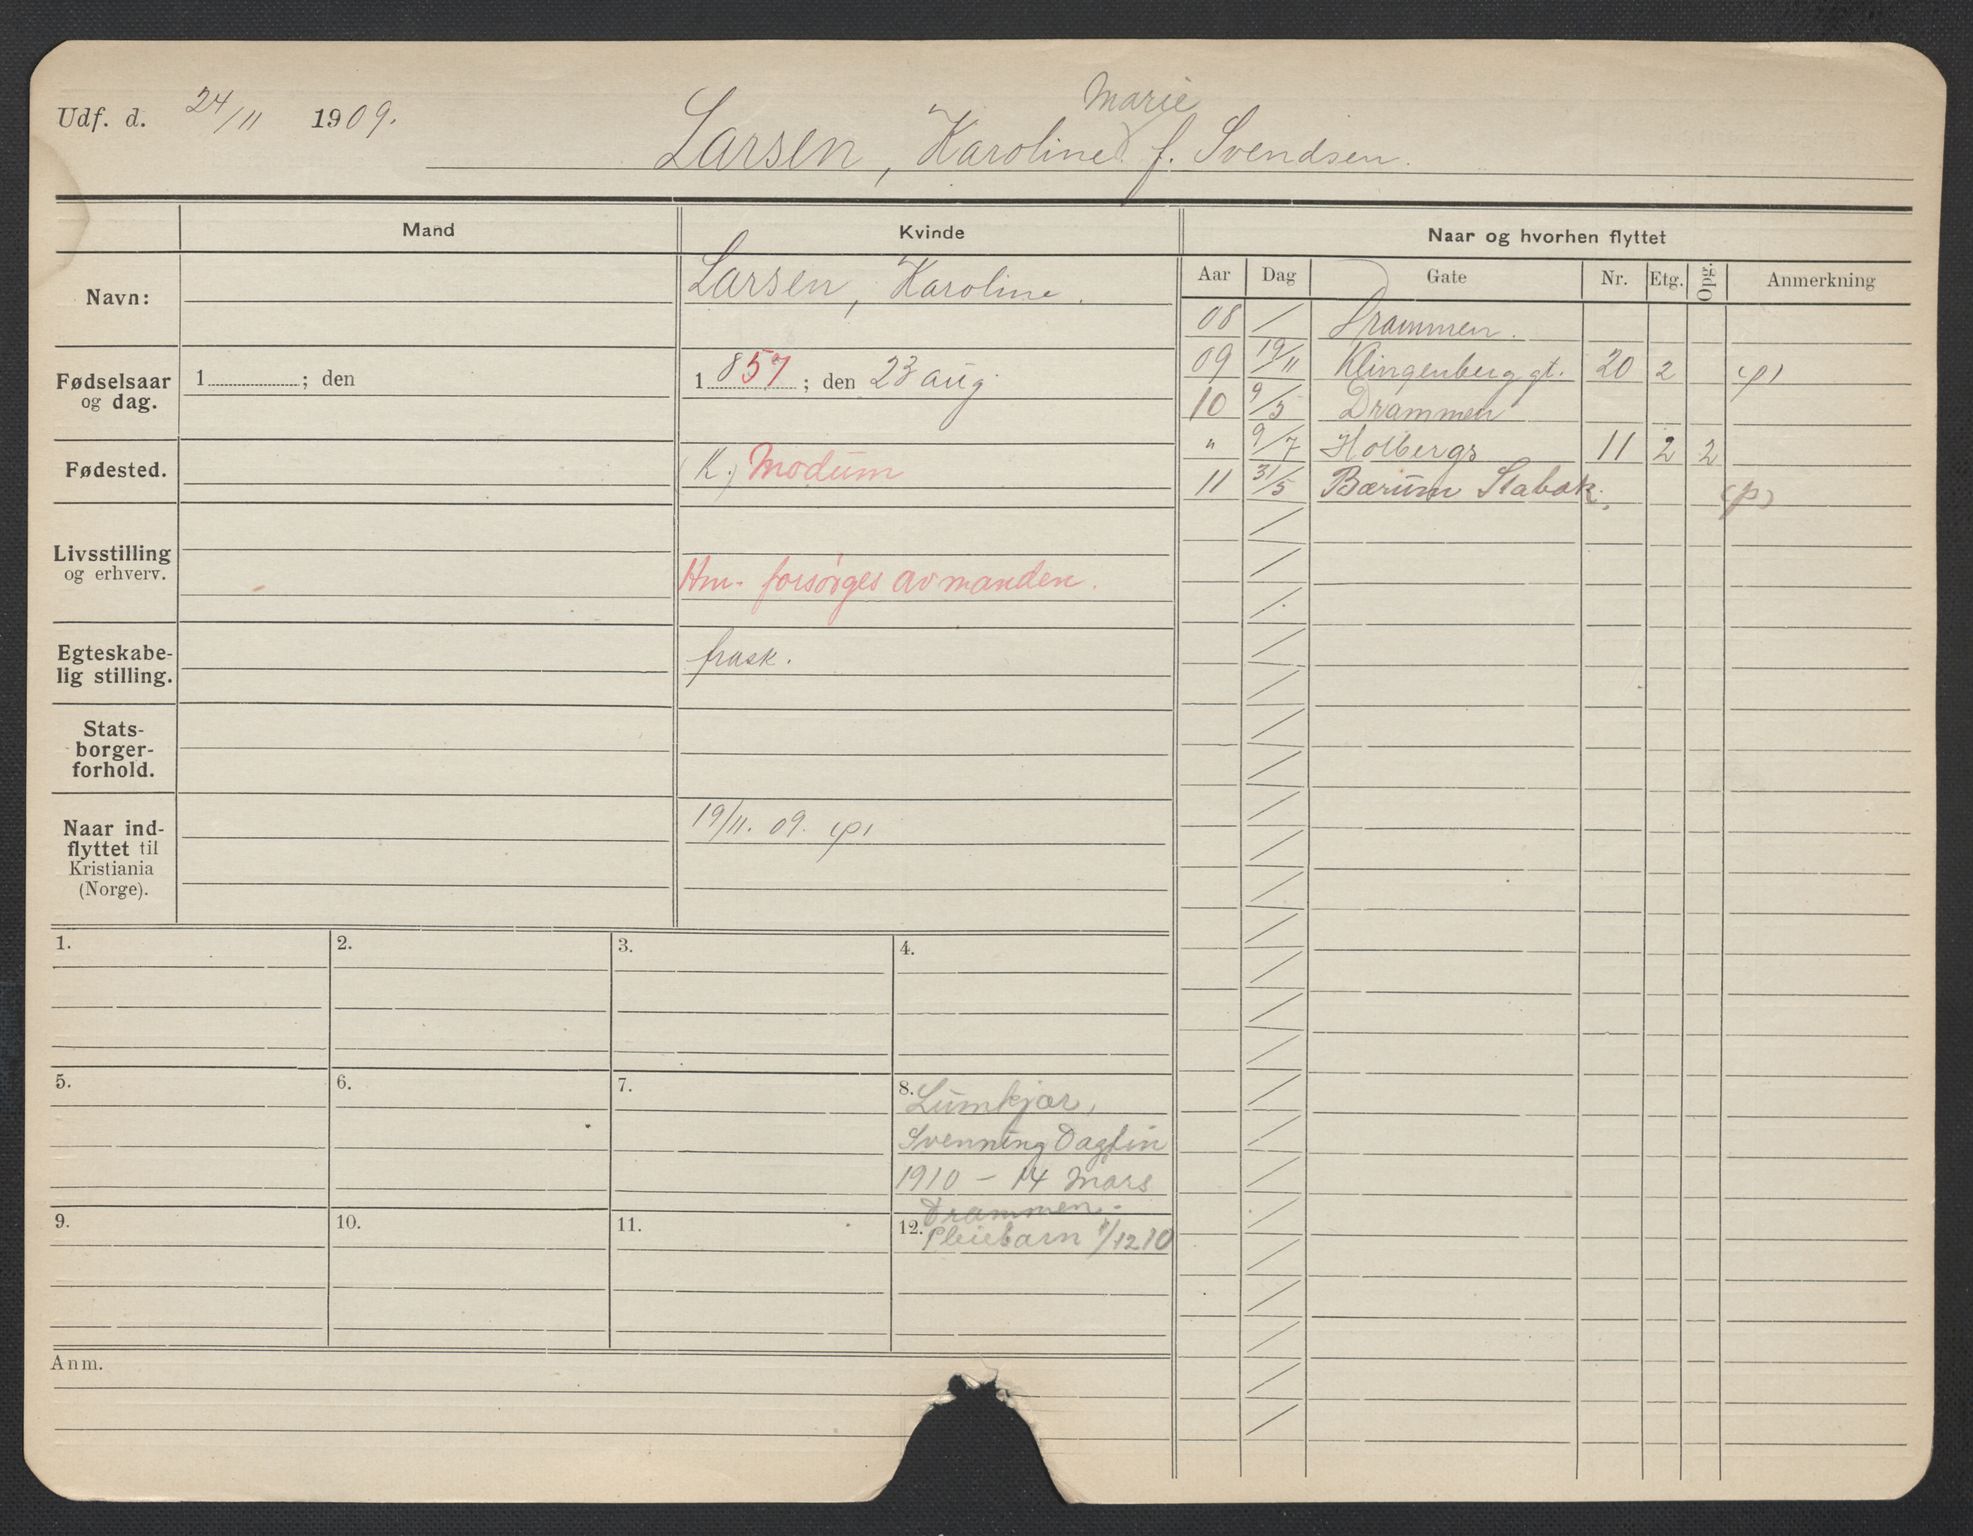 Udf. d. 24/11 1909.
Marie
Larsen, Karoline f. Svendsen.
Mand
Kvinde
Naar og hvorhen flyttet
Navn:
Larsen, Karoline.
Aar Dag Gate Nr. Etg. Opg. Anmerkning
08 / Drammen.
09 19/11 Klingenberg gt. 20 2 (p)
10 9/5 Drammen
" 9/7 Holbergs 11 2 2
11 31/5 Bærum Stabak. (p)
Fødselsaar
og dag.
1 ; den
1857; den 23 aug
Fødested.
(K.) Modum
Livsstilling
og erhverv.
Hm- forsørges av manden.
Egteskabe-
lig stilling.
frask.
Stats-
borger-
forhold.
Naar ind-
flyttet til
Kristiania
(Norge).
19/11. 09. (p)
1. 2. 3. 4.
5. 6. 7. 8.
Svenning Dagfin
1910 - 14 Mars
Drammen.
9. 10. 11. 12.
Pleiebarn 1/12 10
Anm.